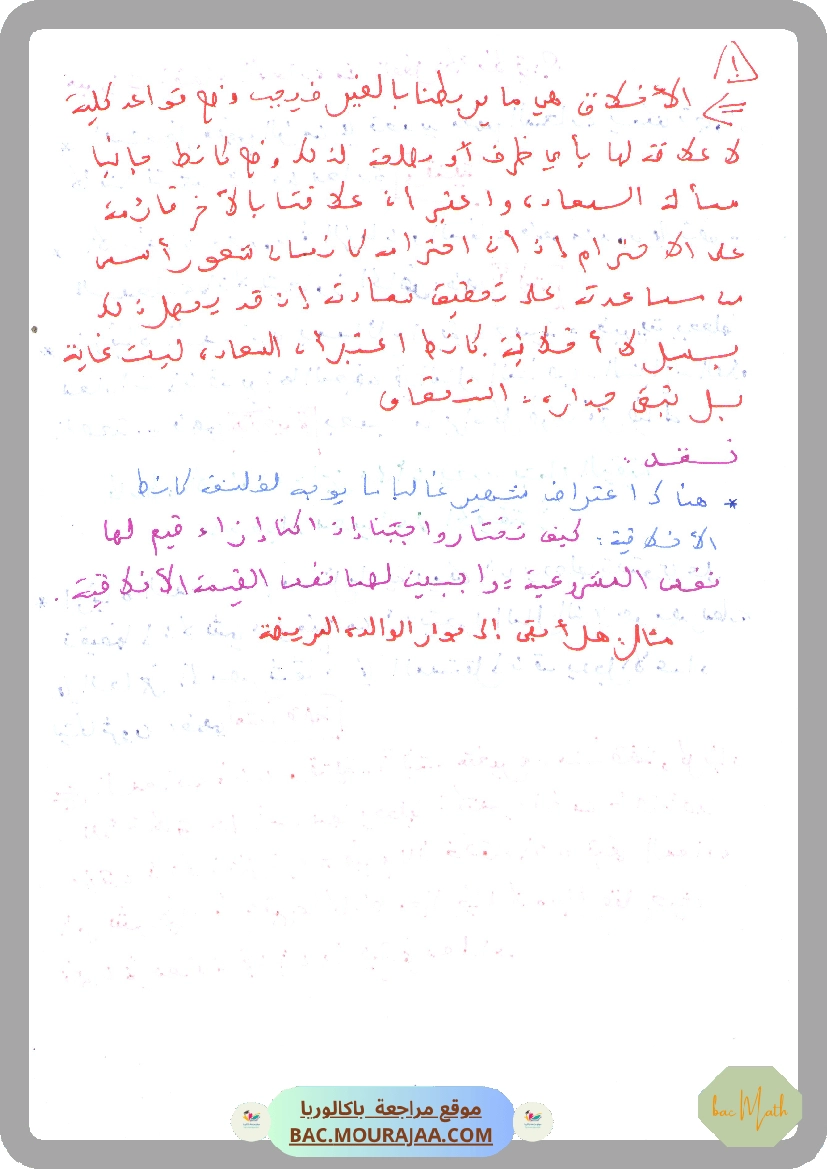 الأخلاق هي ما يربطنا بالغير فيجب وضع قواعد كلية
لا علاقة لها بأي ظرف أو مصلحة لذلك وضع كانط جانبا
مسألة السعادة واعتبر أن علاقتنا بالآخر قائمة
على الاحترام إذ أن احترامه كإنسان شعور أسمى
من مساعدته على تحقيق سعادته إذ قد يحصل ذلك
بسبيل لا أخلاقية. كانط اعتبر أن السعادة ليست غاية
بل تبقى جدارة: استحقاق
نقد:
* هناك اعتراض شهير غالبا ما يوجه لفلسفة كانط
الأخلاقية: كيف نختار واجبنا إذا كنا إزاء قيم لها
نفس المشروعية = واجبين لهما نفس القيمة الأخلاقية.
مثال: هل أبقى إلى جوار الوالدة المريضة
موقع مراجعة باكالوريا
BAC.MOURAJAA.COM
bac Math